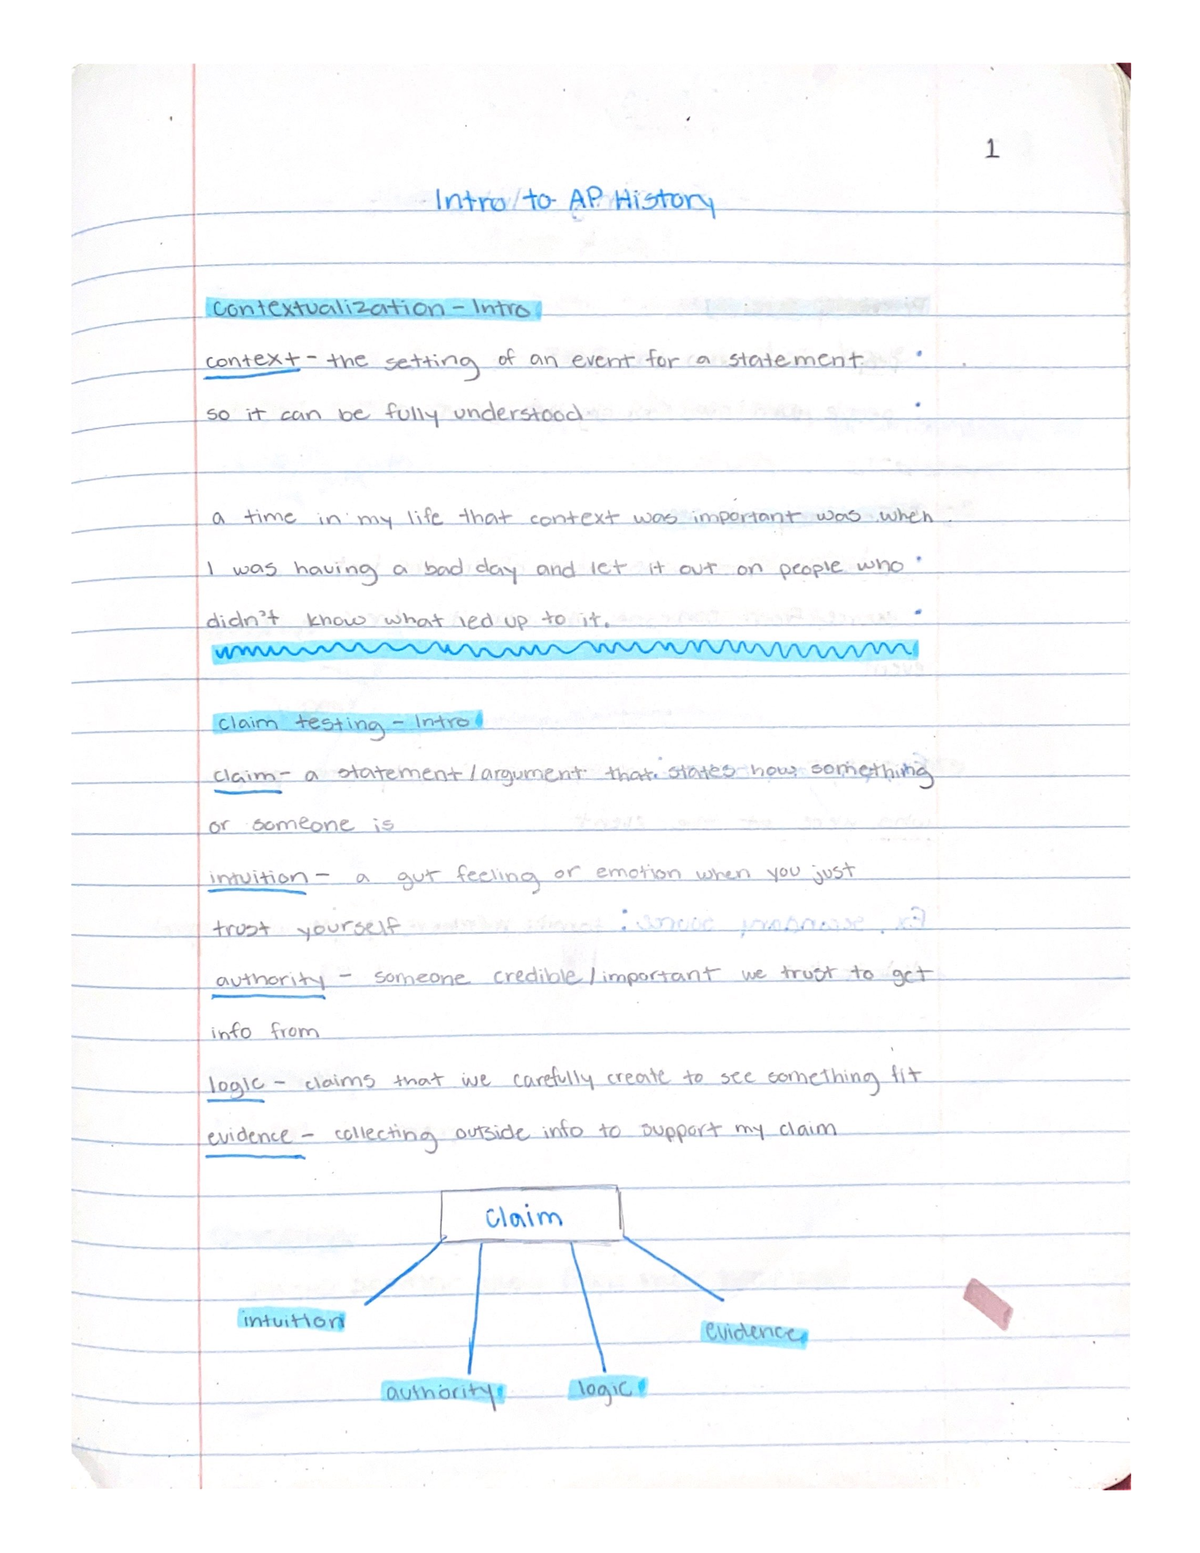 1
Intro to AP History
contextualization - Intro
context - the setting of an event for a statement
so it can be fully understood
a time in my life that context was important was when
I was having a bad day and let it out on people who
didn't know what led up to it.
claim testing - Intro
claim - a statement/argument that states how something
or someone is
intuition - a gut feeling or emotion when you just
trust yourself
authority - someone credible/important we trust to get
info from
logic - claims that we carefully create to see something fit
evidence - collecting outside info to support my claim
claim
intuition
evidence
authority logic